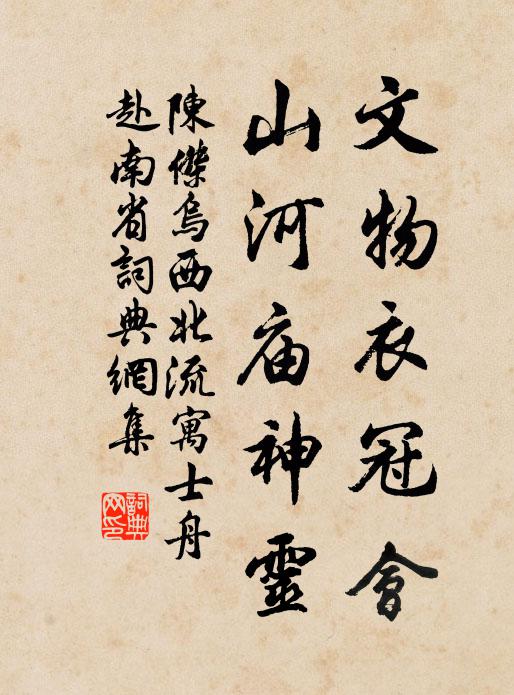 文物衣冠會
山河庙神靈
陳傑烏西北流寓士舟
赴南省詞典網集
詞典网印